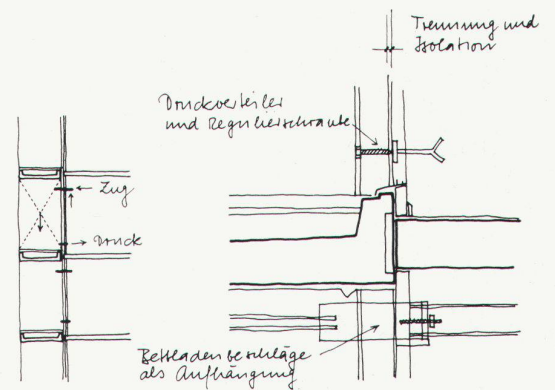 Trennung und
Isolation
Druckverteiler
und Regulierschraube
Zug
Druck
Bettladenbeschläge
als Aufhängung